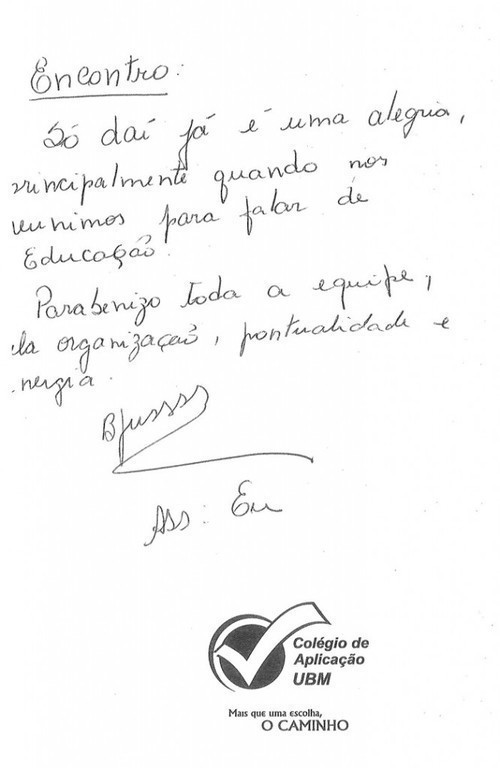 Encontro:
Só daí já é uma alegria,
principalmente quando nos
reunimos para falar de
Educação.
Parabenizo toda a equipe,
la organização, pontualidade e
nergia.
Bjussss
Ass: Eu
Colégio de
Aplicação
UBM
Mais que uma escolha,
O CAMINHO